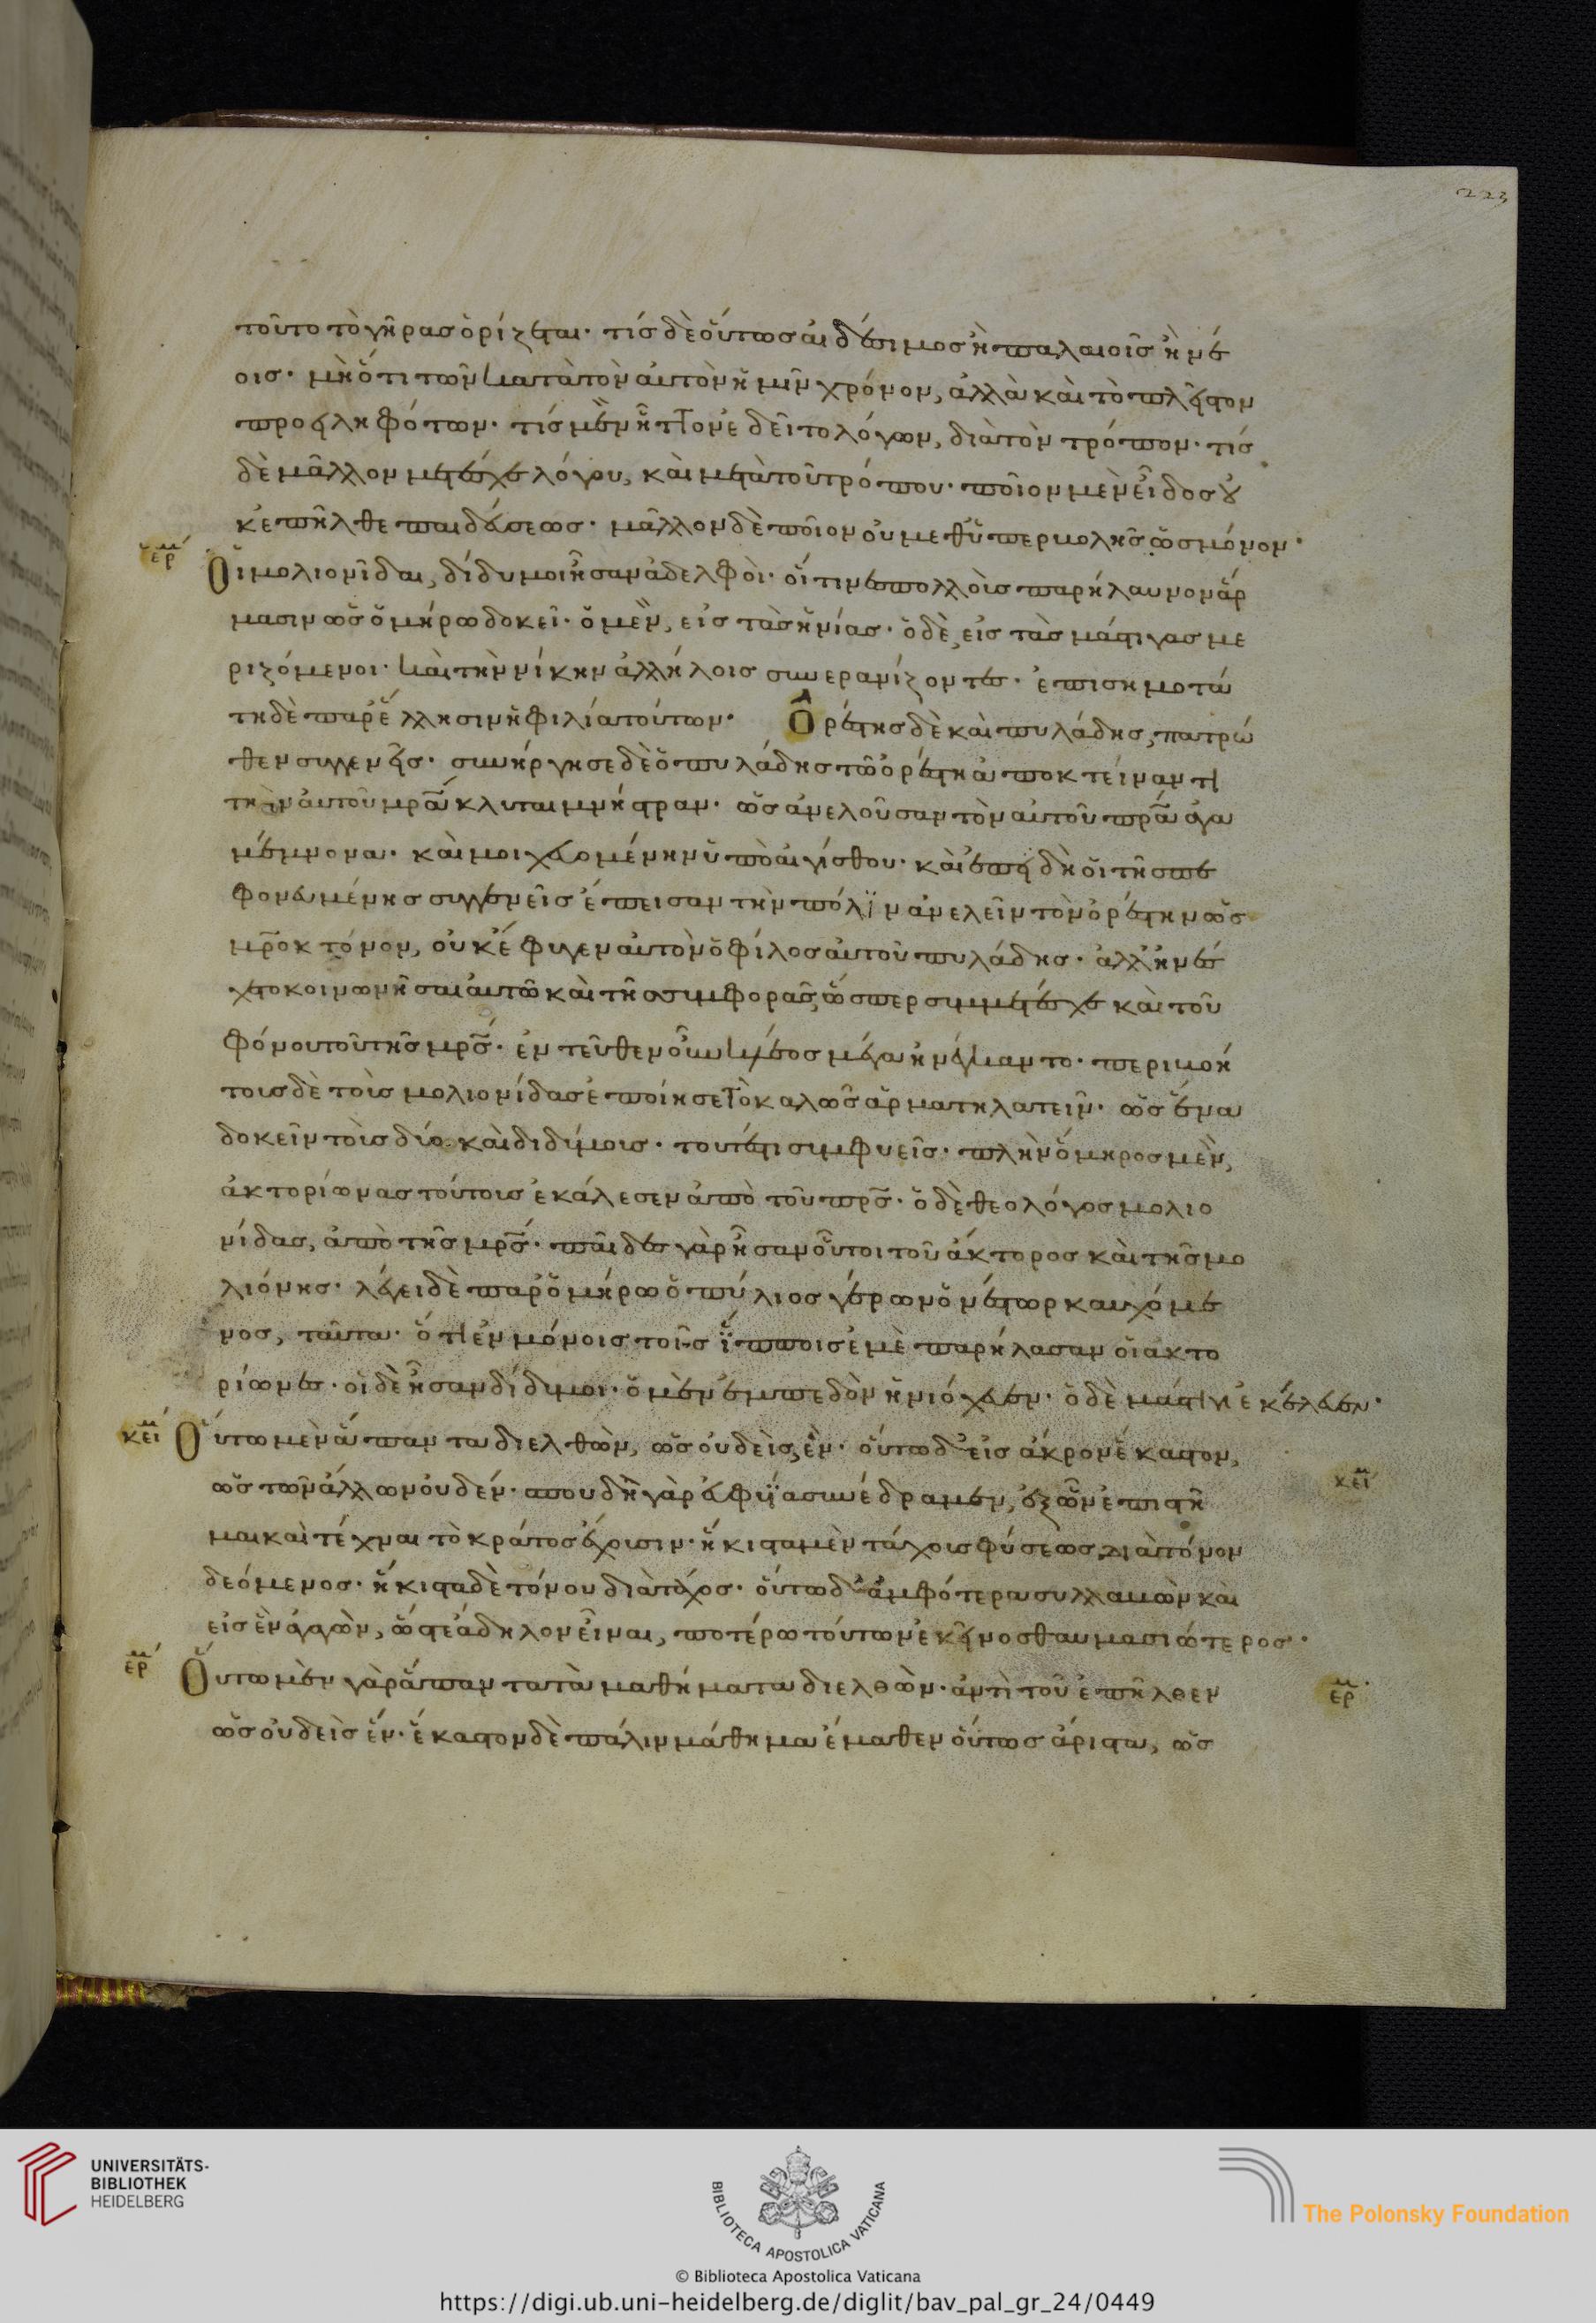 223
τοῦτο τὸ γῆρας ὁρίζεται· τίς δὲ οὕτως αἰδέσιμος ἢ παλαιοῖς ἢ νέ
οις· μὴ ὅτι τῶν κατὰ τὸν αὐτὸν ἡμῖν χρόνον, ἀλλὰ καὶ τὸ πλεῖστον
προειληφότων· τίς μὲν ἧττον ἐδεῖτο λόγων, διὰ τὸν τρόπον· τίς
δὲ μᾶλλον μετέσχε λόγου, καὶ μετὰ τοῦ τρόπου· ποῖον μὲν εἶδος οὐ
κ ἐπῆλθε παιδεύσεως· μᾶλλον δὲ ποῖον οὐ μεθ' ὑπερβολῆς ὡς μόνον·
ἑρμ Οἱ μολιονίδαι, δίδυμοι ἦσαν ἀδελφοί· οἵτινες πολλοῖς παρήλαυνον ἅρ
μασιν ὡς ὁμήρω δοκεῖ· ὁ μὲν, εἰς τὰς ἡνίας· ὁ δὲ, εἰς τὰς μάστιγας με
ριζόμενοι· καὶ τὴν νίκην ἀλλήλοις συνερανίζοντες· ἐπισημοτά
τη δὲ παρ' ἕλλησιν ἡ φιλία τούτων· Ὀρέστης δὲ καὶ πυλάδης, πατρώ
θεν συγγενεῖς· συνήργησε δὲ ὁ πυλάδης τῶ ὀρέστη ἀποκτείναντι
τὴν αὐτοῦ μρα κλυταιμνήστραν· ὡς ἀνελοῦσαν τὸν αὐτοῦ πρα ἀγα
μέμνονα· καὶ μοιχευομένην ὑπὸ αἰγίσθου· καὶ ἐπεὶ δὴ οἱ τῆς πε
φονευμένης συγγενεῖς ἔπεισαν τὴν πόλιν ἀνελεῖν τὸν ὀρέστην ὡς
μροκτόνον, οὐκ ἔφυγεν αὐτὸν ὁ φίλος αὐτοῦ πυλάδης· ἀλλ' ἠνέ
χετο κοινωνῆσαι αὐτῶ καὶ τῆς συμφορᾶς, ὥσπερ συμμετέσχε καὶ τοῦ
φόνου τοῦ τῆς μρς· ἐντεῦθεν οὖν κλέος μέγα ἠνέγκαντο· περιβοή
τοις δὲ τοὺς μολιονίδας ἐποίησε τὸ καλῶς ἁρματηλατεῖν· ὡς ἕνα
δοκεῖν τοὺς δύο καὶ διδύμοις· τουτέστι συμφυεῖς· πλὴν ὅμηρος μὲν,
ἀκτορίωνας τούτοις ἐκάλεσεν ἀπὸ τοῦ πρς· ὁ δὲ θεολόγος μολιο
νίδας, ἀπὸ τῆς μρς· παῖδες γὰρ ἦσαν οὗτοι τοῦ ἄκτορος καὶ τῆς μο
λιόνης· λέγει δὲ παρ' ὁμήρω ὁ πύλιος γέρων ὁ νέστωρ καυχόμε
νος, ταῦτα· ὅτι ἐν μόνοις τοῖς ἵπποις ἐμὲ παρήλασαν οἱ ἀκτο
ρίωνες· οἱ δὲ ἦσαν δίδυμοι· ὁ μὲν ἔμπεδον ἡνιόχευεν· ὁ δὲ μάστιγι ἐκέλευεν·
κείμ Οὕτω μὲν ἅπαντα διελθὼν, ὡς οὐδεὶς ἕν· οὕτω δ' εἰς ἄκρον ἕκαστον,
ὡς τῶν ἄλλων οὐδέν· σπουδῆ γὰρ εὐφυΐα συνέδραμεν, ἐξ ὧν ἐπιστῆ κείμ
μαι καὶ τέχναι τὸ κράτος ἔχουσιν· ἥκιστα μὲν τάχους φύσεως διὰ πόνον
δεόμενος· ἥκιστα δὲ πόνου διὰ τάχος· οὕτω δ' ἀμφότερα συλλαβὼν καὶ
εἰς ἓν ἀγαγὼν, ὥστε ἄδηλον εἶναι, ποτέρω τούτων ἐκεῖνος θαυμασιώτερος·
ἑρμ Οὕτω μὲν γὰρ ἅπαντα τὰ μαθήματα διελθὼν· ἀντὶ τοῦ ἐπῆλθεν ἑρμ
ὡς οὐδεὶς ἕν· ἕκαστον δὲ πάλιν μάθημα ἔμαθεν οὕτως ἄριστα, ὡς
UNIVERSITÄTS-
BIBLIOTHEK
HEIDELBERG
BIBLIOTECA APOSTOLICA VATICANA
The Polonsky Foundation
© Biblioteca Apostolica Vaticana
https://digi.ub.uni-heidelberg.de/diglit/bav_pal_gr_24/0449